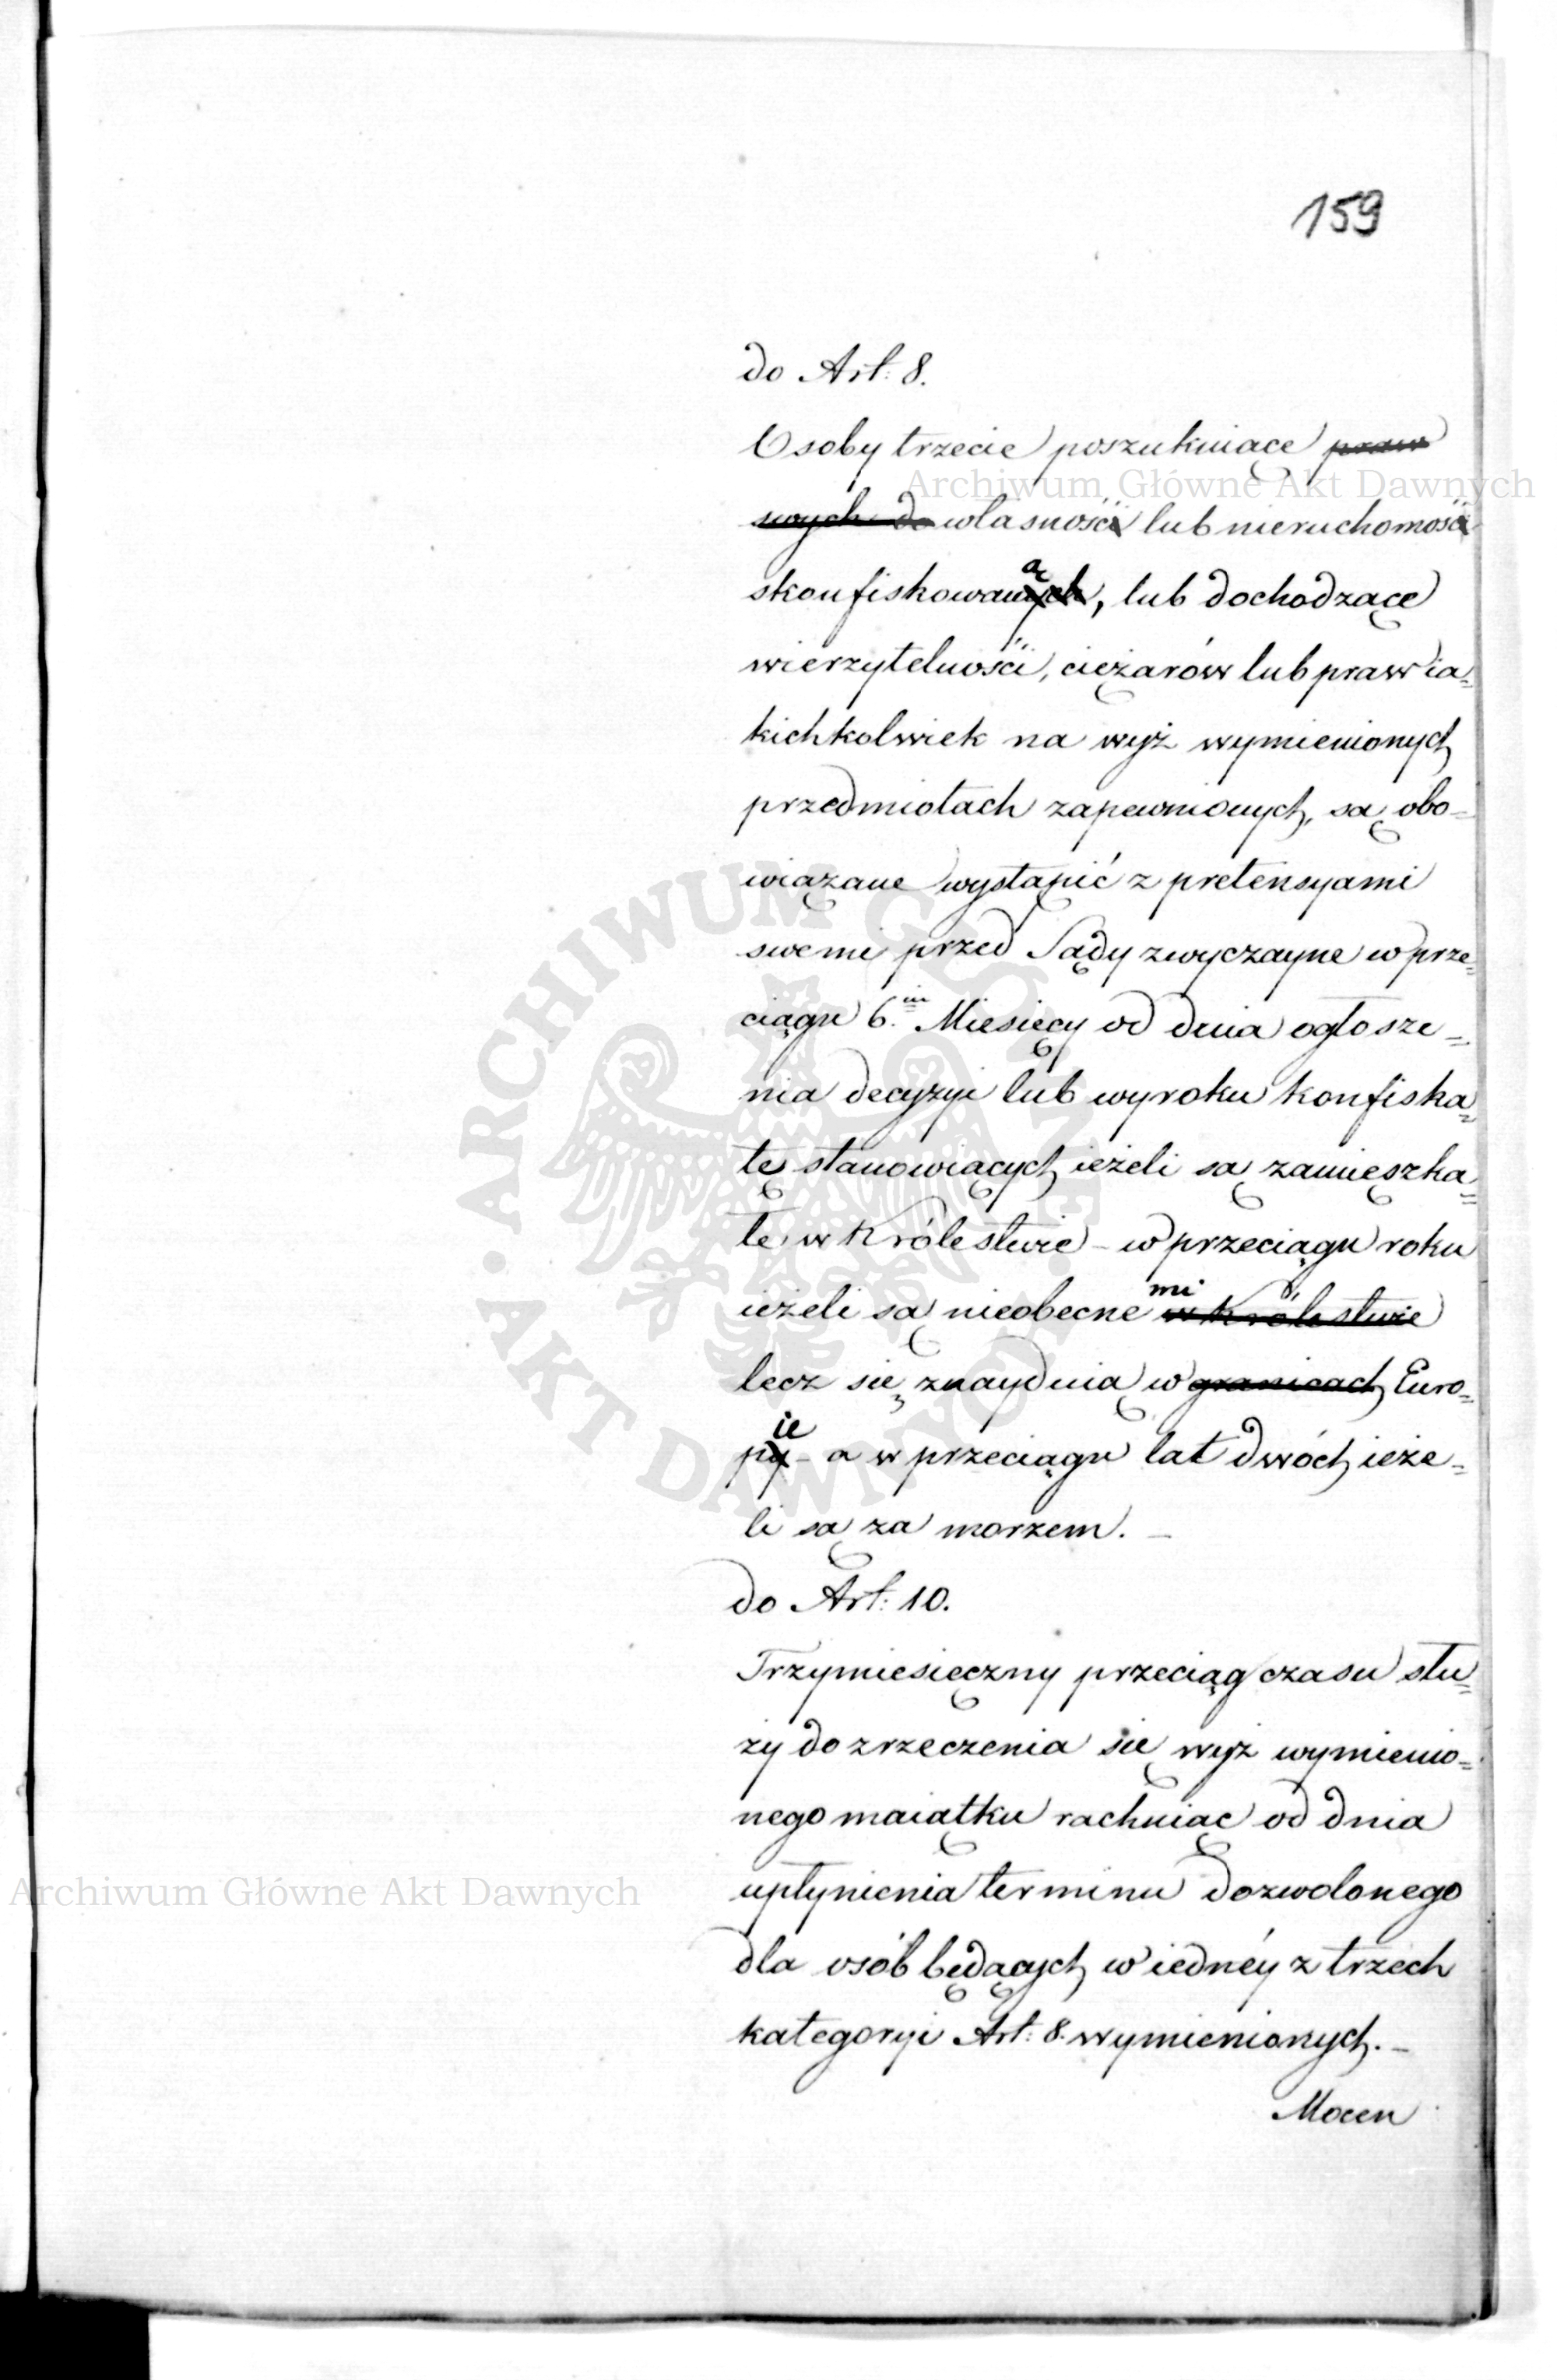 159
do Art: 8.
Osoby trzecie poszukuiące praw
swych do własności lub nieruchomości
ą
skonfiskowanych, lub dochodzące
wierzytelności, ciężarów lub praw ia=
kichkolwiek na wyż wymienionych
przedmiotach zapewnionych, są obo=
wiązane wystąpić z pretensyami
swemi przed Sądy zwyczayne w prze=
ciągu 6.iu Miesięcy od dnia ogłosze=
nia decyzyi lub wyroku konfiska=
tę stanowiących ieżeli są zamięszka=
łe w Królestwie – w przeciągu roku
mi
ieżeli są nieobecne w Królestwie
lecz się znayduią w granicach Euro=
ie
py – a w przeciągu lat dwóch ieże=
li są za morzem. –
do Art: 10.
Trzymiesięczny przeciąg czasu słu=
ży do zrzeczenia się wyż wymienio=
nego maiątku rachuiąc od dnia
upłynienia terminu dozwolonego
dla osób będących w iednéy z trzech
kategoryi Art: 8. wymienionych. –
Mocen
Archiwum Główne Akt Dawnych
Archiwum Główne Akt Dawnych
ARCHIWUM GŁÓWNE AKT DAWNYCH